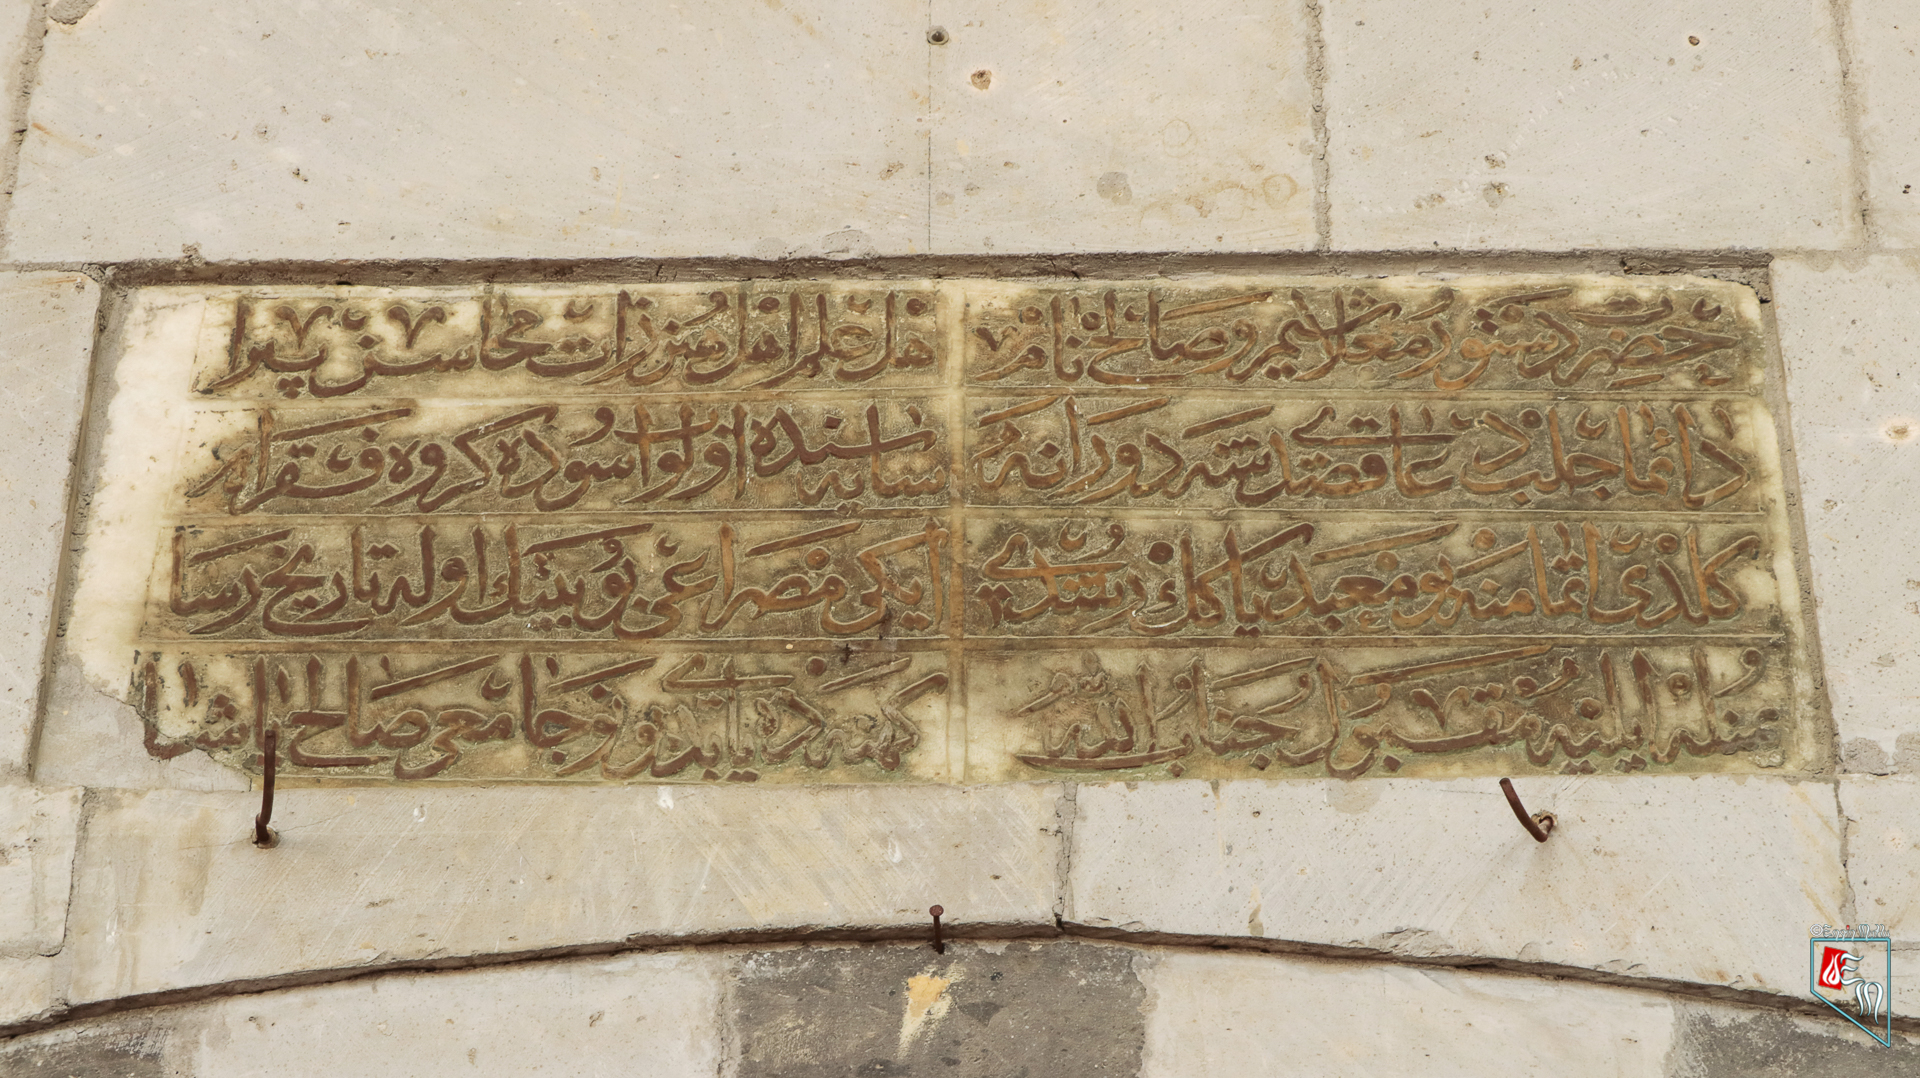 حضرت دستور معلا شیم و صالح نام
اهل علم اهل هنر ذات محاسن پیرا
دائما جلب دعا قصدی شه دورانه
سایه سنده اولوا سوده کروه فقرا
کلدی اتمامنه بو معبد پاکك رشدی
ایکی مصراعی بو بیتك اوله تاریخ رسا
منزل ایلیه مقبول جناب الله
یاپدی نو جامعی صالح پاشا